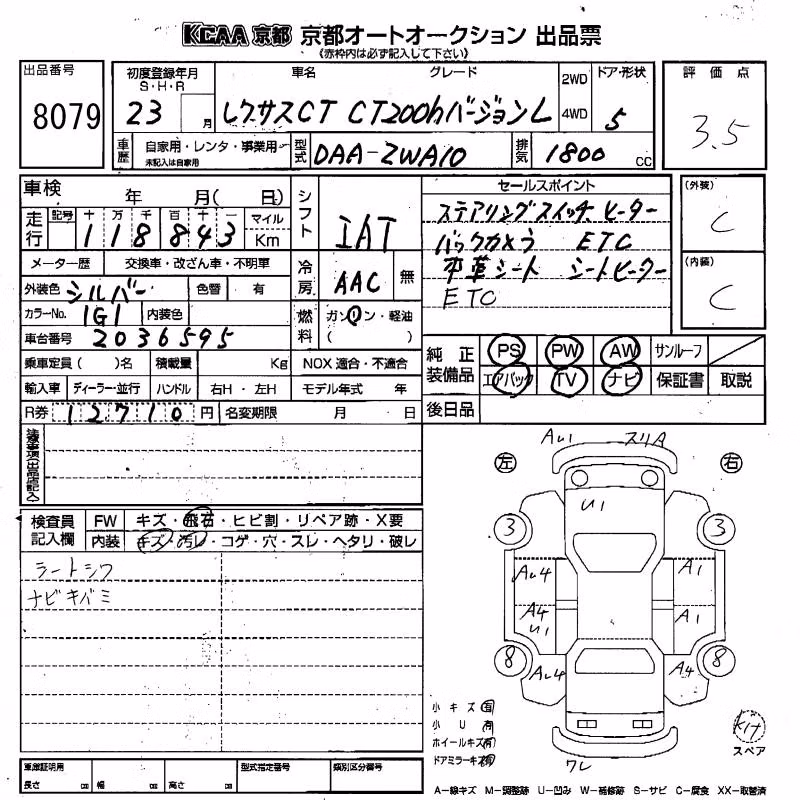 KCAA 京都 京都オートオークション 出品票
《赤枠内は必ず記入して下さい》
出品番号
8079
初度登録年月
S・H・R
23 月
車名 グレード
レクサスCT CT200hバージョンL
2WD
4WD
ドア・形状
5
評価点
3.5
車歴 自家用・レンタ・事業用
未記入は自家用
型式 DAA-ZWA10
排気 1800 CC
車検 年 月( 日)
走行 記号 十 万 千 百 十 一 マイル
118843 Km
メーター歴 交換車・改ざん車・不明車
外装色 シルバー 色替 有
カラーNo. 1G1 内装色
車台番号 2036595
乗車定員( )名 積載量 Kg
NOX 適合・不適合
輸入車 ディーラー・並行 ハンドル 右H・左H モデル年式 年
R券 12710円 名変期限 月 日
シフト IAT
冷房 AAC 無
燃料 ガソリン・軽油
( )
セールスポイント
ステアリングスイッチ ヒーター
バックカメラ ETC
本革シート シートヒーター
ETC
(外装)
C
(内装)
C
純正装備品 PS PW AW サンルーフ
エアバック TV ナビ 保証書 取説
後日品
注意事項(出品店記入)
検査員記入欄
FW キズ・飛石・ヒビ割・リペア跡・X要
内装 キズ・汚レ・コゲ・穴・スレ・ヘタリ・破レ
シートシワ
ナビキバミ
左 右
AU1 スリA
U1
3 3
AU4 A1
A4 A1
U1
8 8
AU4 A4
ワレ
小キズ 有
小U 有
ホイールキズ 有
ドアミラーキズ 有
Kit
スペア
車庫証明用
長さ cm 幅 cm 高さ cm
型式指定番号 類別区分番号
A-線キズ M-調整跡 U-凹み W-補修跡 S-サビ C-腐食 XX-取替済